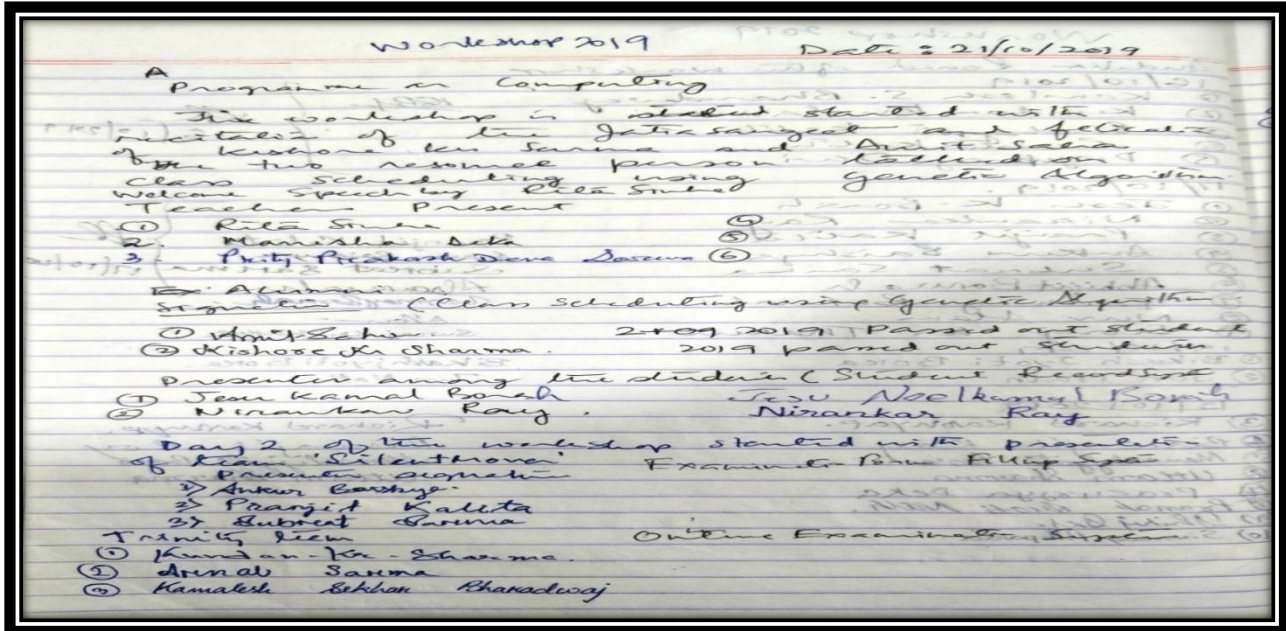 Workshop 2019 Date : 21/10/2019
A
Programme on Computing
The workshop is started started with
recitation of the Jatiasangeet and felicitation
of Kishore kr Sarma and Amit Saha
the two resource person on
Class scheduling using Genetic Algorithm
Welcome Speech by Rita
Teachers Present
① Rita ④
2. Manisha Deka ⑤
3 Prity Prakash Deva Sarma ⑥
Ex Alumni
Signature (Class Scheduling using Genetic Algorithm
① Amit Saha 2019 Passed out Student
② Kishore Kr Sharma. 2019 passed out Student
Presenter among the students (Student Record System
① Jesu Kamal Borah Jesu Neelkamal Borah
② Nirankar Ray. Nirankar Ray
Day 2 of the workshop started with presentation
of team Examination Form Fillup System
Presenter signature
1) Ankur
2) Pranjit Kalita
3) Subrat Sarma
Trinity team Online Examination System
① Kundan - Kr - Sharma.
② Arunab Sarma
③ Kamalesh Sekhar Bharadwaj